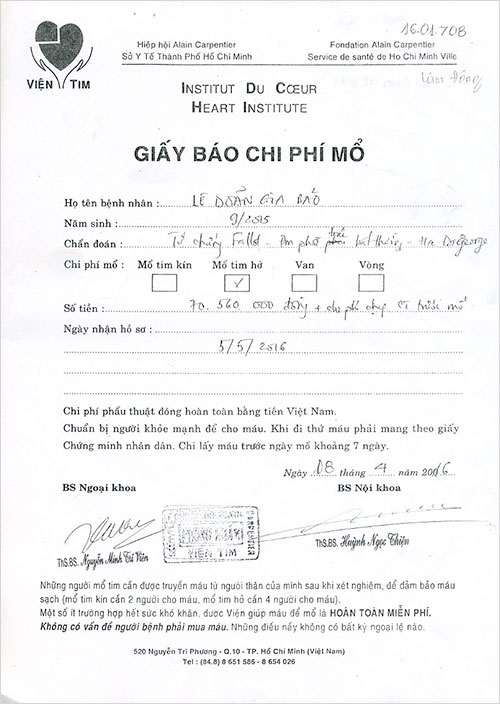 16.01.708
Hiệp hội Alain Carpentier
Sở Y Tế Thành Phố Hồ Chí Minh
Fondation Alain Carpentier
Service de santé de Ho Chi Minh Ville
Lâm Đồng
VIỆN TIM
INSTITUT DU CŒUR
HEART INSTITUTE
GIẤY BÁO CHI PHÍ MỔ
Họ tên bệnh nhân : LÊ DOÃN GIA BẢO
Năm sinh : 9/2015
Chẩn đoán : Tứ chứng Fallot - ĐM phổi trái bất thường - H/c DiGeorge
Chi phí mổ : Mổ tim kín Mổ tim hở Van Vòng
✓
Số tiền : 70.560 000 đồng + chi phí chụp CT trước mổ
Ngày nhận hồ sơ :
5/5/2016
Chi phí phẩu thuật đóng hoàn toàn bằng tiền Việt Nam.
Chuẩn bị người khỏe mạnh để cho máu. Khi đi thử máu phải mang theo giấy
Chứng minh nhân dân. Chỉ lấy máu trước ngày mổ khoảng 7 ngày.
Ngày 08 tháng 4 năm 2016
BS Ngoại khoa
BS Nội khoa
VIỆN TIM
ThS.BS. Nguyễn Minh Trí Viên
ThS.BS. Huỳnh Ngọc Thiện
Những người mổ tim cần được truyền máu từ người thân của mình sau khi xét nghiệm, để đảm bảo máu
sạch (mổ tim kín cần 2 người cho máu, mổ tim hở cần 4 người cho máu).
Một số ít trường hợp hết sức khó khăn, được Viện giúp máu để mổ là HOÀN TOÀN MIỄN PHÍ.
Không có vấn đề người bệnh phải mua máu. Những điều nầy không có bất kỳ ngoại lệ nào.
520 Nguyễn Tri Phương - Q.10 - TP. Hồ Chí Minh (Việt Nam)
Tel : (84.8) 8 651 586 - 8 654 026